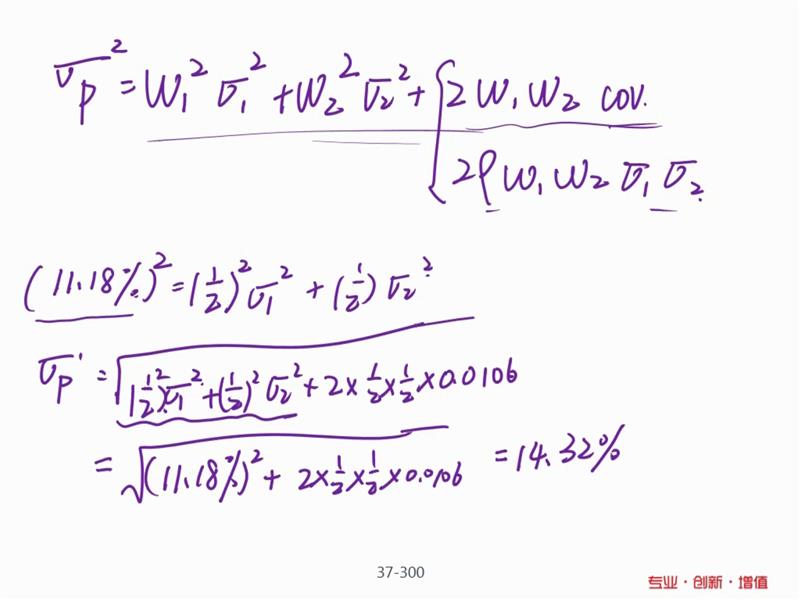 σp² = W₁² σ₁² + W₂² σ₂² + { 2 W₁ W₂ cov.
2ρ W₁ W₂ σ₁ σ₂.
(11.18%)² = (1/2)² σ₁² + (1/2) σ₂²
σp' = √((1/2)² σ₁² + (1/2)² σ₂² + 2 × 1/2 × 1/2 × 0.0106)
= √((11.18%)² + 2 × 1/2 × 1/2 × 0.0106) = 14.32%
37-300
专业·创新·增值